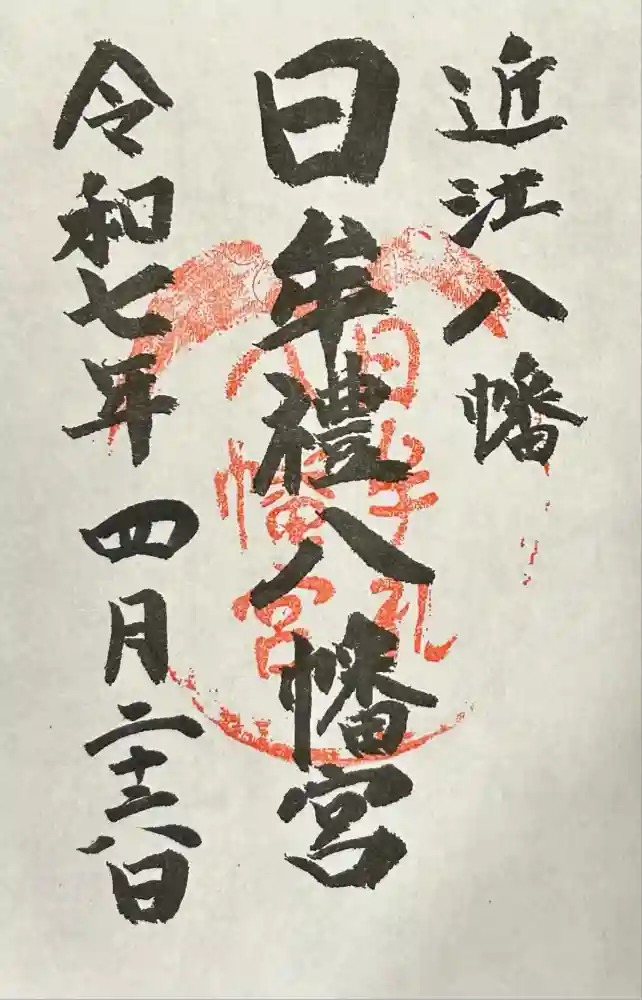 近江八幡
日牟禮八幡宮
日牟礼
八幡宮
令和七年 四月二十六日